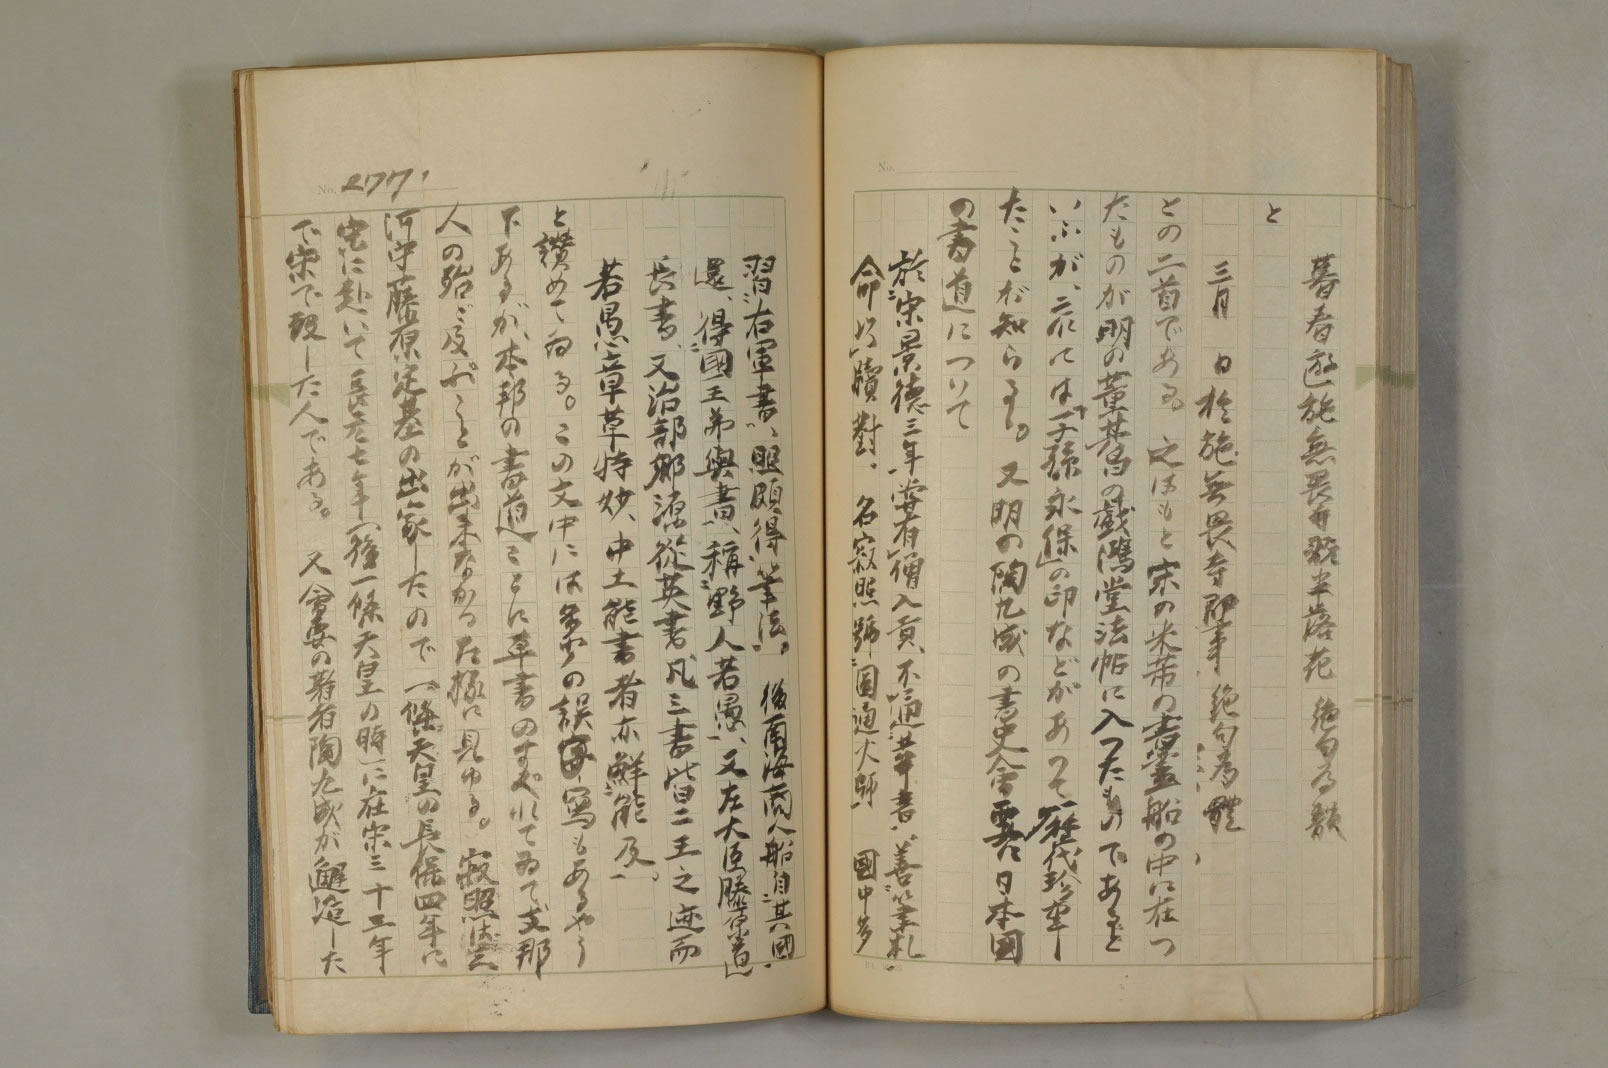 No.
暮春遊施無畏寺翫半落花 絶句為韻
と
三月 日於施無畏寺即事 絶句為體
との二首である。之はもと宋の米芾の書畫船の中に在つ
たものが明の董其昌の戲鴻堂法帖に入つたものであると
いふが、
子孫永保」の印などがあつて歴代珍蔵し
たことが知られる。又明の陶九成の書史会要に日本國
の書道について
於宋景徳三年、嘗有僧入貢、不通華言、善筆札、
命以牘對、名寂照、號圓通大師、國中多
No. 277
習右軍書、照頗得筆法。後南海商人船自其國
還、得國王弟與書、稱野人若愚、又左大臣藤原道
長書、又治部卿源從英書、凡三書皆二王之迹而
若愚章草特妙、中土能書者亦鮮能及。
と讃めてゐる。この文中には多少の誤寫もあるやう
であるが、本邦の書道ことに草書のすぐれてゐて支那
人の殆ど及ぶことが出来なかつた様に見ゆる。寂照は
河守藤原定基の出家したので一條天皇の長保四年に
宋に赴いて長元七年(後一條天皇の時)に在宋三十三年
で宋で歿した人である。又會要の著者陶九成が
した